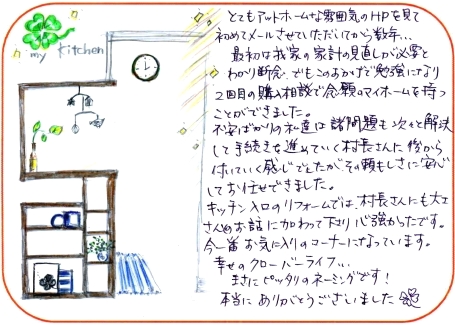 my Kitchen
とてもアットホームな雰囲気のHPを見て
初めてメールさせていただいてから数年...
最初は我家の家計の見直しが必要と
わかり断念。でもこのおかげで勉強になり
2回目の購入相談で念願のマイホームを持つ
ことができました。
不安ばかりの私達は諸問題も次々と解決
して手続きを進めていく村長さんに後から
付いていく感じでしたが、その頼もしさに安心
してお任せできました。
キッチン入口のリフォームでは、村長さんにも大工
さんのお話に加わって下さり心強かったです。
今一番お気に入りのコーナーになっています。
幸せのクローバーライフ...
まさにピッタリのネーミングです!
本当にありがとうございました